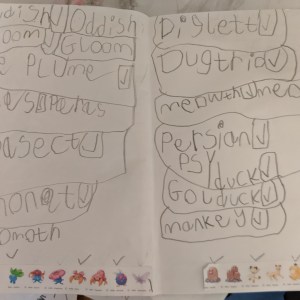 ddish Oddish
oom Gloom
e PLume
asect
nonat
omoth
Diglett
Dugtrio
meowth meo
Persian
Psy
duck
Golduck
mankey